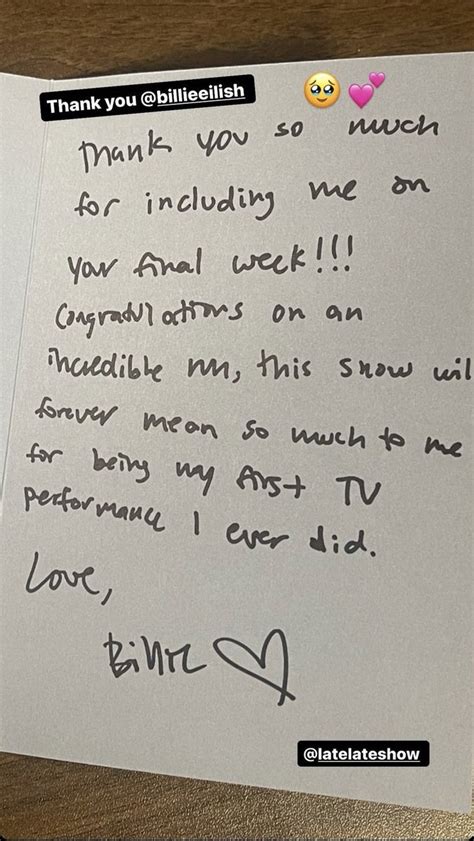 Thank you @billieeilish
Thank you so much
for including me on
your final week!!!
Congradulations on an
incredible run, this show will
forever mean so much to me
for being my first TV
performance I ever did.
Love,
Billie
@latelateshow